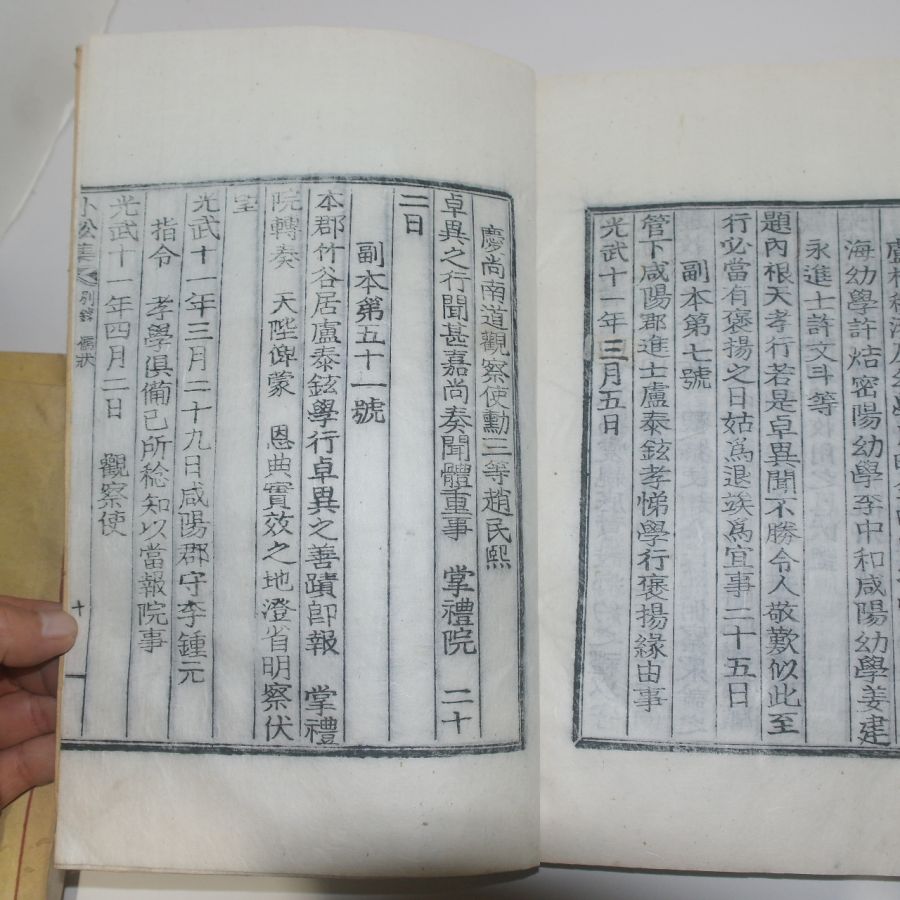 海幼學許 炶密陽幼學李中和咸陽幼學姜建
永進士許文斗等
題內根天孝行若是卓異聞不勝令人敬歎似此至
行必當有褒揚之日姑爲退竢爲宜事二十五日
副本第七號
管下咸陽郡進士盧泰鉉孝悌學行褒揚緣由事
光武十一年三月五日
慶尚南道觀察使勳三等趙民熙
卓異之行聞甚嘉尚奏聞體重事 掌禮院 二十
二日
副本第五十一號
本郡竹谷居盧泰鉉學行卓異之善蹟卽報 掌禮
院轉奏 天陛俾蒙 恩典實效之地澄省明察伏
望
光武十一年三月二十九日咸陽郡守李鍾元
指令 孝學俱備已所稔知以當報院事
光武十一年四月二日 觀察使
小松集 別錄 儒狀 十